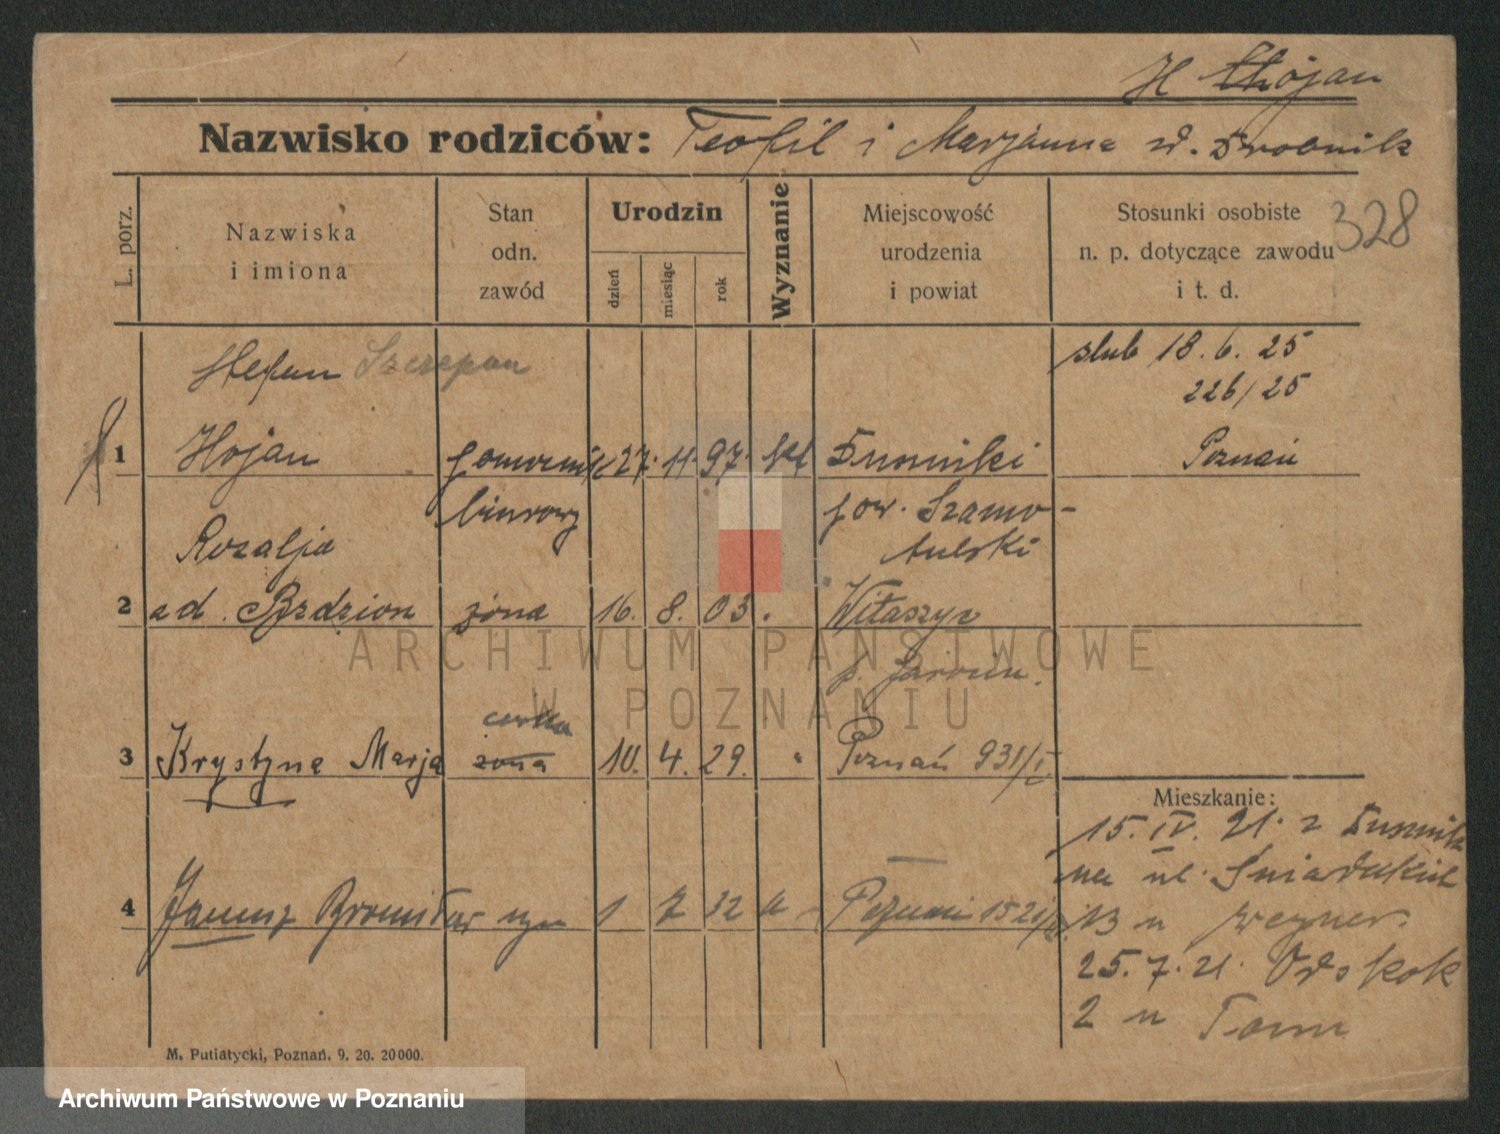 H Chojan
Nazwisko rodziców: Teofil i Marjanna z d. Drobnik
L. porz.
Nazwiska
i imiona
Stan
odn.
zawód
Urodzin
dzień
miesiąc
rok
Wyznanie
Miejscowość
urodzenia
i powiat
Stosunki osobiste
n. p. dotyczące zawodu
i t. d.
328
Stefan Szczepan
ślub 18.6.25
226/25
1 Hojan pomocnik 27. 11. 97. kat Duszniki Poznań
biurowy pow. Szamo-
tulski
Rozalja
2 zd. Bzdzion żona 16. 8. 03. Witaszyce
p. Jarocin.
córka
3 Krystyna Marja żona 10. 4. 29. " Poznań 931/I
Mieszkanie:
15. IV. 21. z Dusznik
na ul. Śniadeckich
4 Janusz Bronisław syn 1 7 32 Poznań
13 u
25.7.21.
2 u
M. Putiatycki, Poznań. 9. 20. 20000.
ARCHIWUM PAŃSTWOWE
W POZNANIU
Archiwum Państwowe w Poznaniu